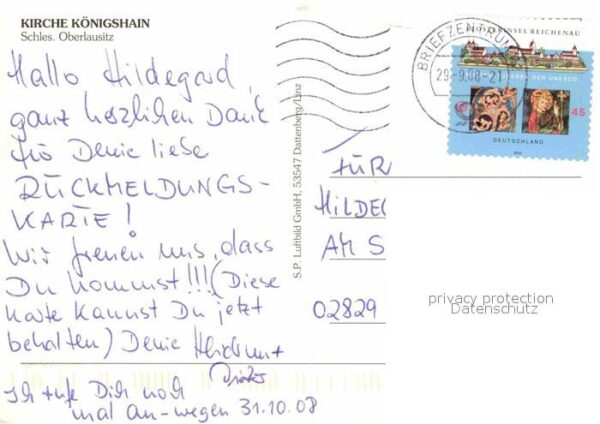 KIRCHE KÖNIGSHAIN
Schles. Oberlausitz
Hallo Hildegard,
ganz herzlichen Dank
für Deine liebe
RÜCKMELDUNGS-
KARTE!
Wir freuen uns, dass
Du kommst!!! (Diese
Karte kannst Du jetzt
behalten) Deine Heidrun +
Ich rufe Dich noch
mal an-wegen 31.10.08
S.P. Luftbild GmbH. 53547 Dattenberg/Linz
BRIEFZENTRUM
29-9.08-21
KLOSTERINSEL REICHENAU
WELTERBE DER UNESCO
45
DEUTSCHLAND
2008
FÜR
HILDEG
AM S
02829
privacy protection
Datenschutz